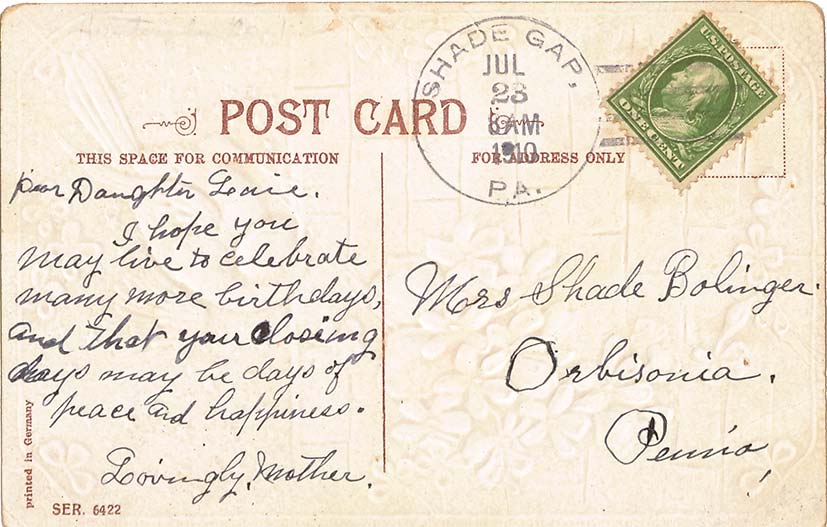 SHADE GAP,
JUL
23
8AM
1910
PA.
U.S. POSTAGE
ONE CENT
POST CARD
THIS SPACE FOR COMMUNICATION
FOR ADDRESS ONLY
Dear Daughter
I hope you
may live to celebrate
many more birthdays,
and that your closing
days may be days of
peace and happiness.
Lovingly, Mother.
Mrs Shade Bolinger.
Orbisonia.
Penna
printed in Germany
SER. 6422